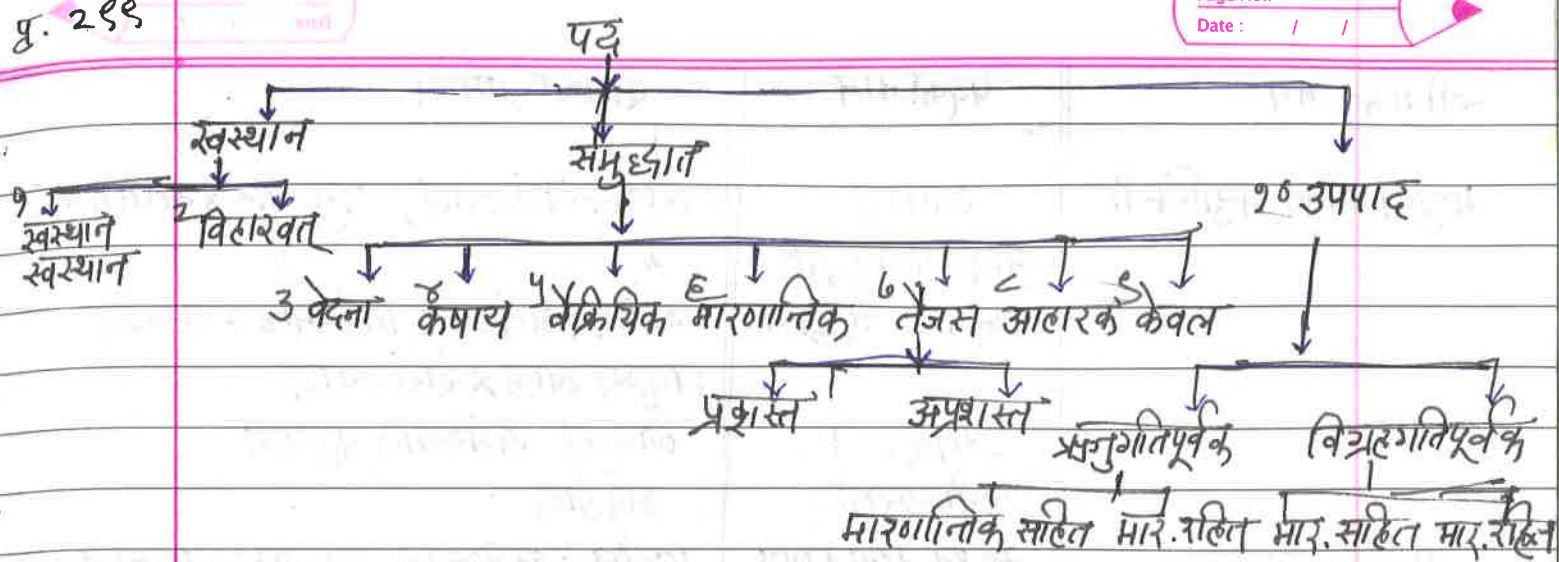 पृ. २९९
Date : / /
पद
स्वस्थान
समुद्घात
१० उपपाद
१ स्वस्थान स्वस्थान
२ विहारवत्
३ वेदना ४ कषाय ५ वैक्रियिक ६ मारणान्तिक ७ तैजस ८ आहारक ९ केवल
प्रशस्त अप्रशस्त
ऋजुगतिपूर्वक विग्रहगतिपूर्वक
मारणान्तिक सहित मार. रहित मार. सहित मार. रहित